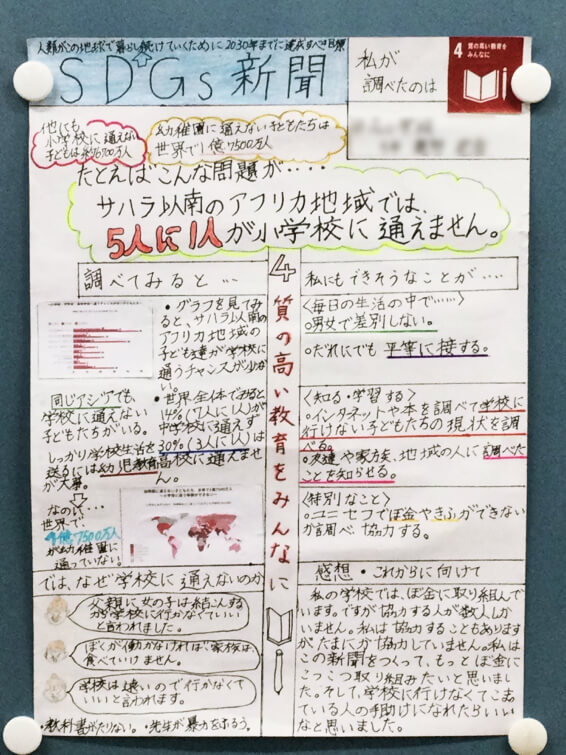 人類がこの地球で暮らし続けていくために2030年までに達成すべき目標
SDGs新聞
私が
調べたのは
4 質の高い教育を
みんなに
他にも
小学校に通えない
子どもは約5700万人
幼稚園に通えない子どもたちは
世界で1億7500万人
たとえばこんな問題が‥‥
サハラ以南のアフリカ地域では、
5人に1人が小学校に通えません。
調べてみると…
・グラフを見てみ
ると、サハラ以南の
アフリカ地域の
子ども達が学校に
通うチャンスが少な
い。
同じアジアでも、
学校に通えない
子どもたちがいる。
しっかり学校生活を
送るには幼児教育
が大事。
・世界全体でみると
14%(7人に1人)が
中学校に通えず
30%(3人に1人)は
高校に通えませ
ん。
なのに…
世界で
1億7500万人
が幼稚園に
通っていない。
では、なぜ学校に通えないのか
父親に女の子は結こんする
が学校に行かなくていい
と言われました。
ぼくが働かなければ、家族は
食べていけません。
学校は遠いので行かなくて
いいと言われます。
・教科書がたりない。・先生が暴力をふるう。
4 質の高い教育をみんなに
私にもできそうなことが‥‥
〈毎日の生活の中で……〉
○男女で差別しない。
○だれにでも平等に接する。
〈知る・学習する〉
○インタネットや本を調べて学校に
行けない子どもたちの現状を調
べる。
○友達や家族、地域の人に調べた
ことを知らせる。
〈特別なこと〉
○ユニセフでぼ金やきふができない
か調べ協力する。
感想・これからに向けて
私の学校では、ぼ金に取り組んで
います。ですが協力する人が数人しか
いません。私は協力することもあります
が、たまにしか協力していません。私は
この新聞をつくって、もっとぼ金に
こつこつ取り組みたいと思いまし
た。そして、学校に行けなくてこまっ
ている人の手助けになれたらいい
なと思いました。